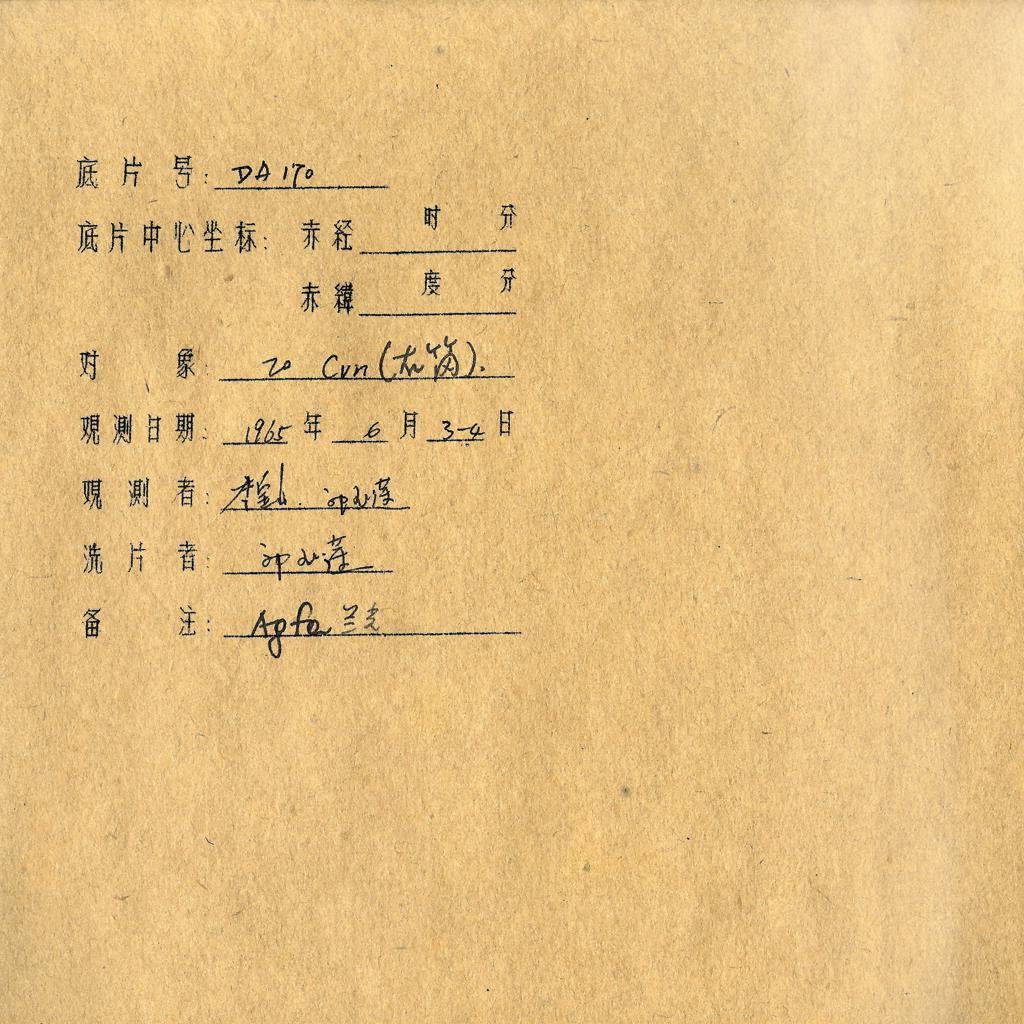 底片号: DA170
底片中心坐标: 赤经 时 分
赤緯 度 分
对象: 20 Cvn (右 ).
观測日期: 1965 年 6 月 3-4 日
观測者:
洗片者:
备注: Agfa 兰光